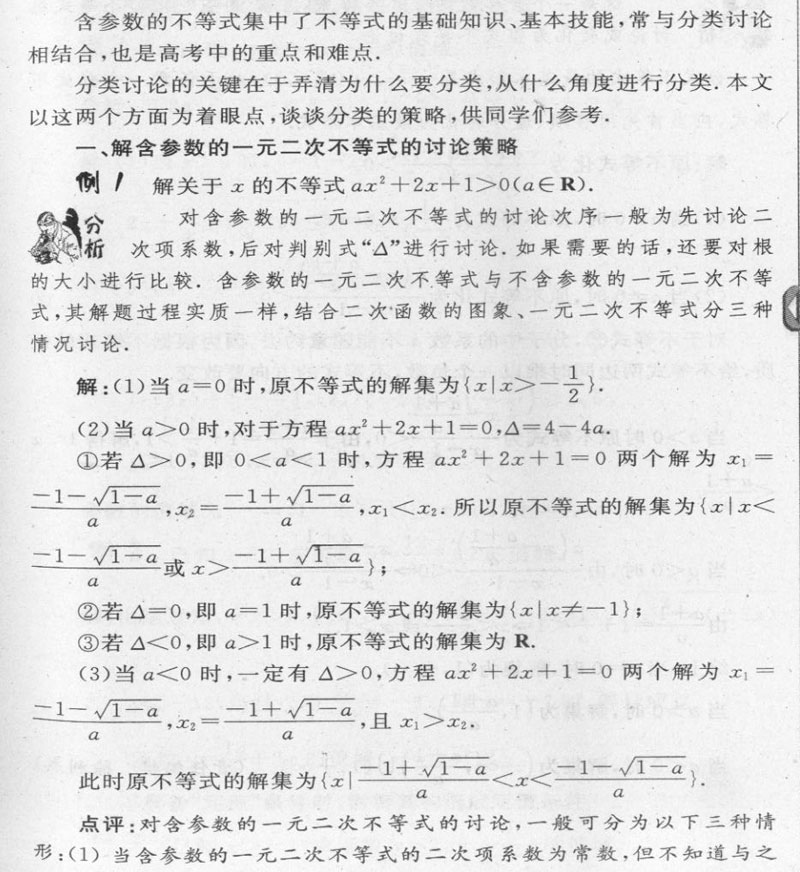 含参数的不等式集中了不等式的基础知识、基本技能,常与分类讨论
相结合,也是高考中的重点和难点.
分类讨论的关键在于弄清为什么要分类,从什么角度进行分类.本文
以这两个方面为着眼点,谈谈分类的策略,供同学们参考.
一、解含参数的一元二次不等式的讨论策略
例1 解关于 x 的不等式 ax²+2x+1>0(a∈R).
分析 对含参数的一元二次不等式的讨论次序一般为先讨论二
次项系数,后对判别式“Δ”进行讨论.如果需要的话,还要对根
的大小进行比较.含参数的一元二次不等式与不含参数的一元二次不等
式,其解题过程实质一样,结合二次函数的图象、一元二次不等式分三种
情况讨论.
解:(1)当 a=0 时,原不等式的解集为{x|x>-1/2}.
(2)当 a>0 时,对于方程 ax²+2x+1=0,Δ=4-4a.
①若 Δ>0,即 0<a<1 时,方程 ax²+2x+1=0 两个解为 x₁=
(-1-√(1-a))/a,x₂=(-1+√(1-a))/a,x₁<x₂.所以原不等式的解集为{x|x<
(-1-√(1-a))/a 或 x>(-1+√(1-a))/a};
②若 Δ=0,即 a=1 时,原不等式的解集为{x|x≠-1};
③若 Δ<0,即 a>1 时,原不等式的解集为 R.
(3)当 a<0 时,一定有 Δ>0,方程 ax²+2x+1=0 两个解为 x₁=
(-1-√(1-a))/a,x₂=(-1+√(1-a))/a,且 x₁>x₂.
此时原不等式的解集为{x|(-1+√(1-a))/a<x<(-1-√(1-a))/a}.
点评:对含参数的一元二次不等式的讨论,一般可分为以下三种情
形:(1)当含参数的一元二次不等式的二次项系数为常数,但不知道与之